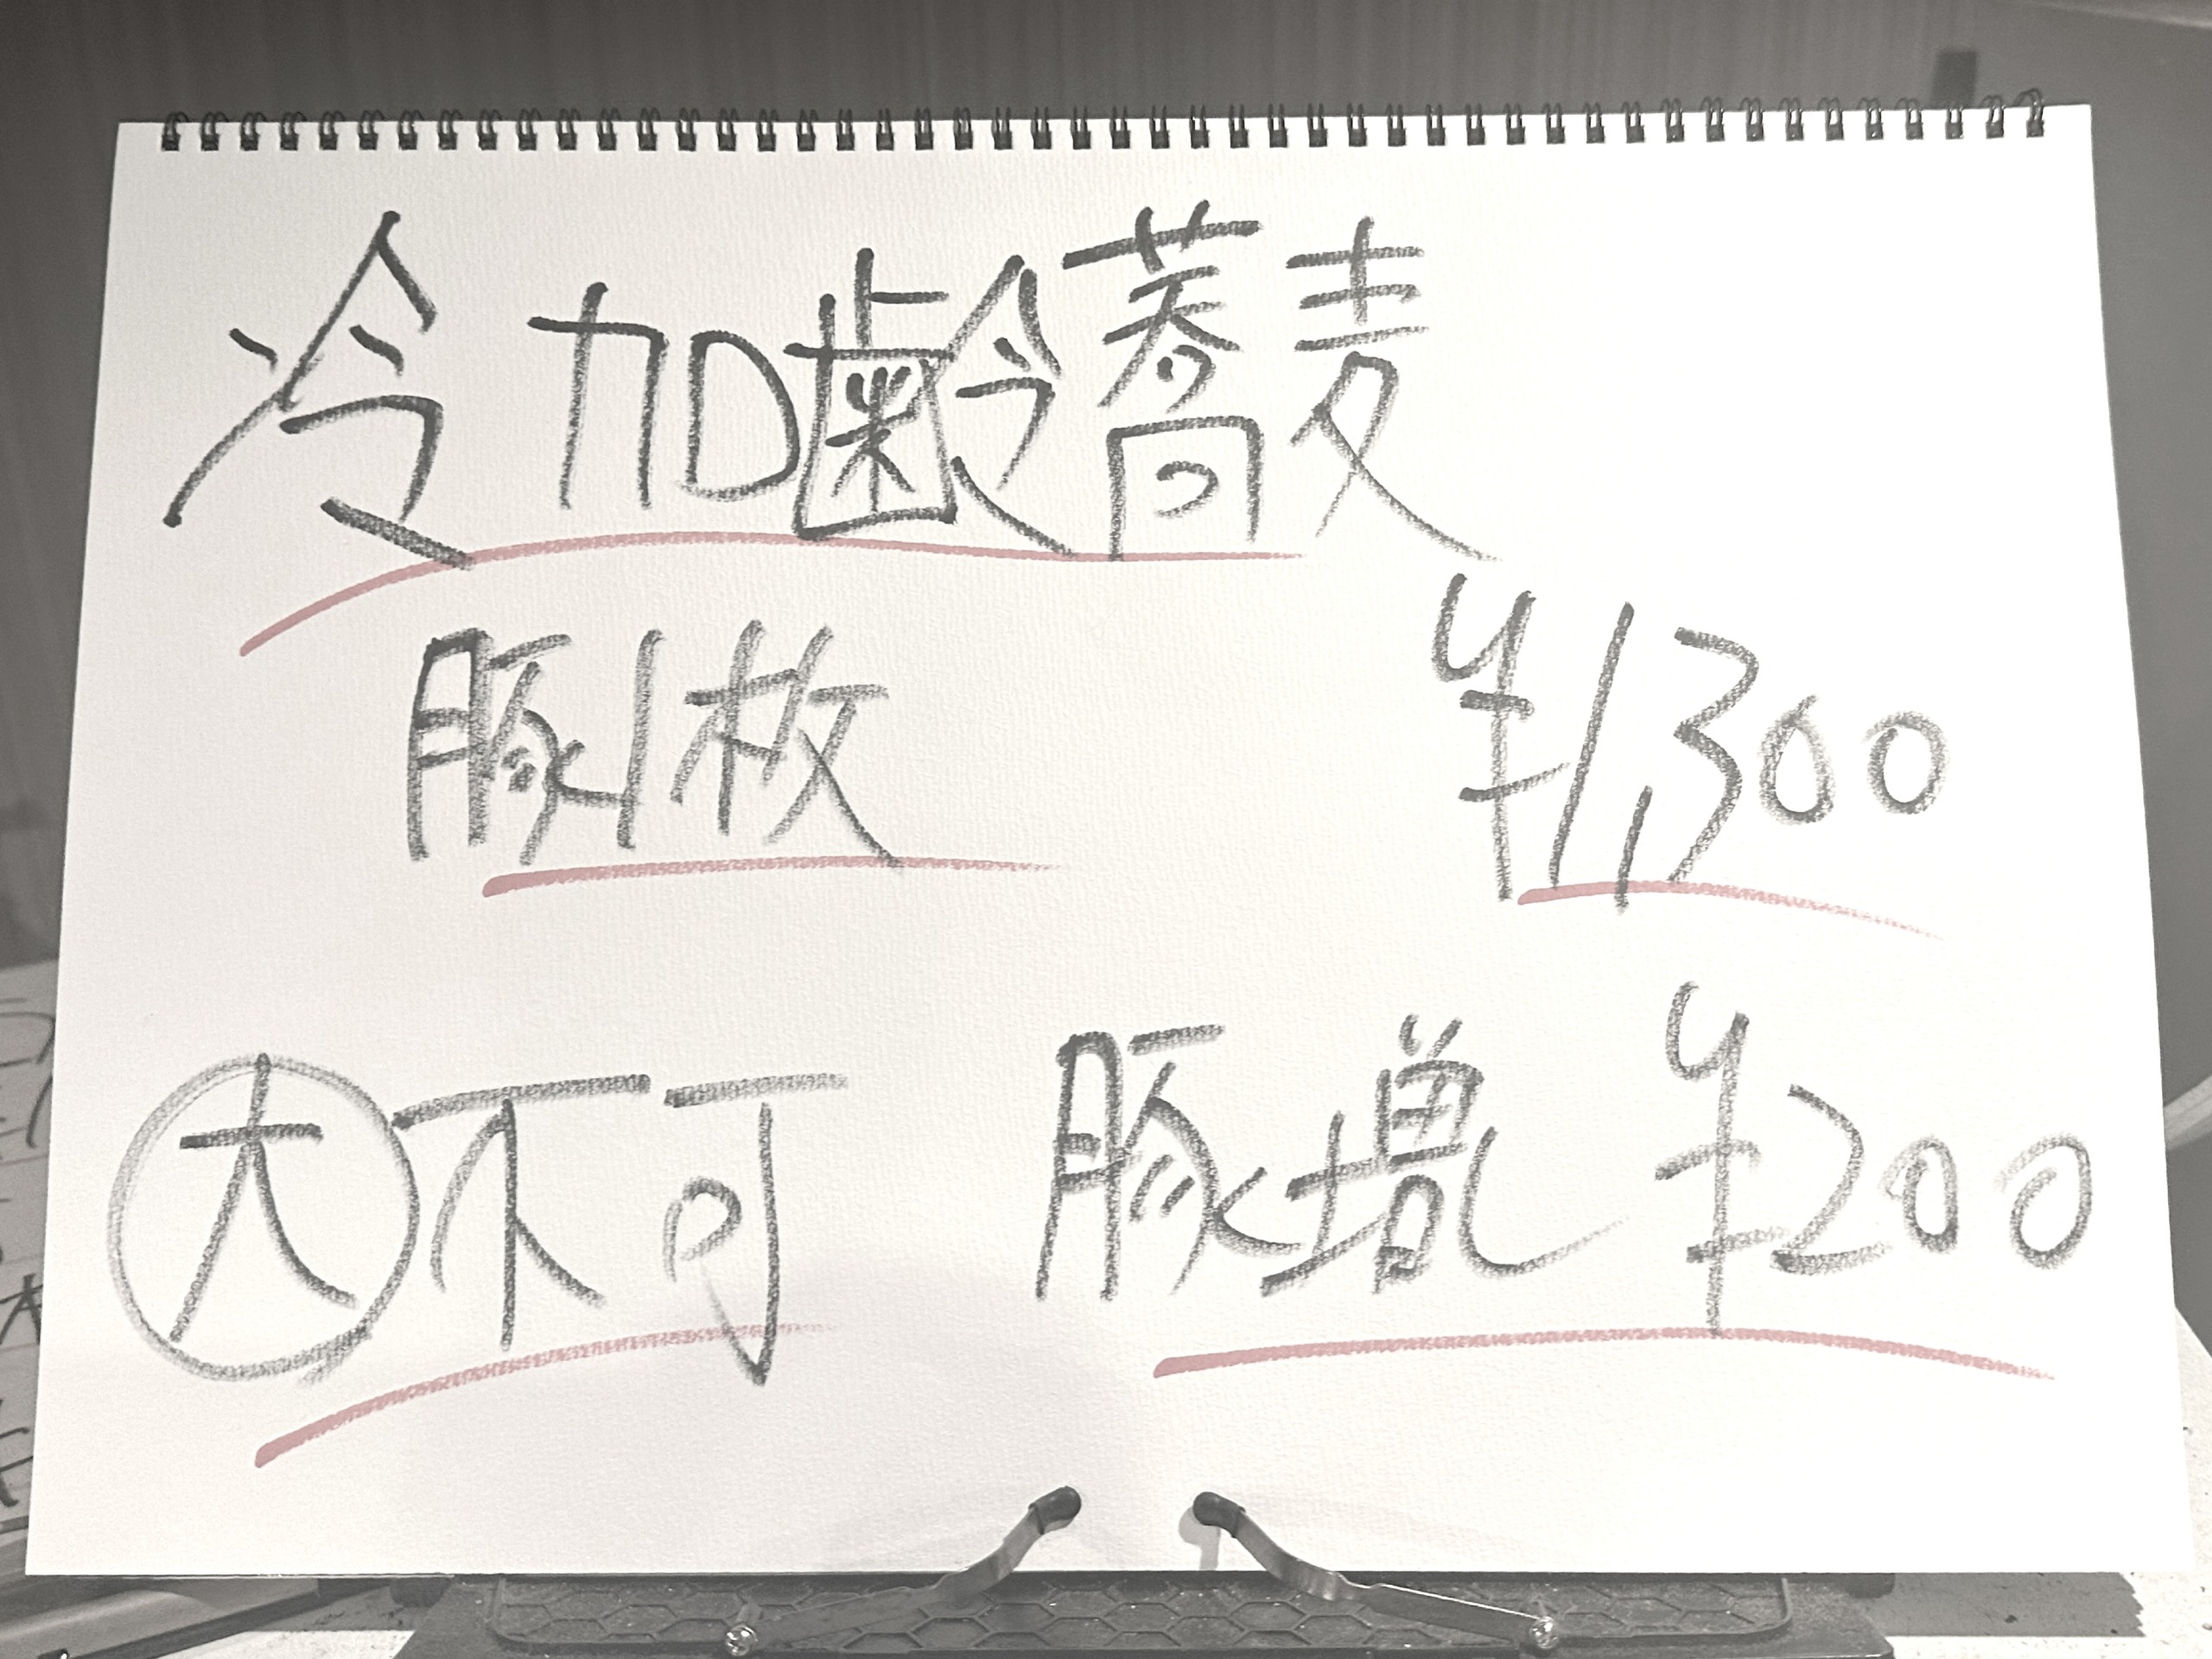 冷 加齢蕎麦
豚1枚 ¥1,300
大不可 豚増し ¥200